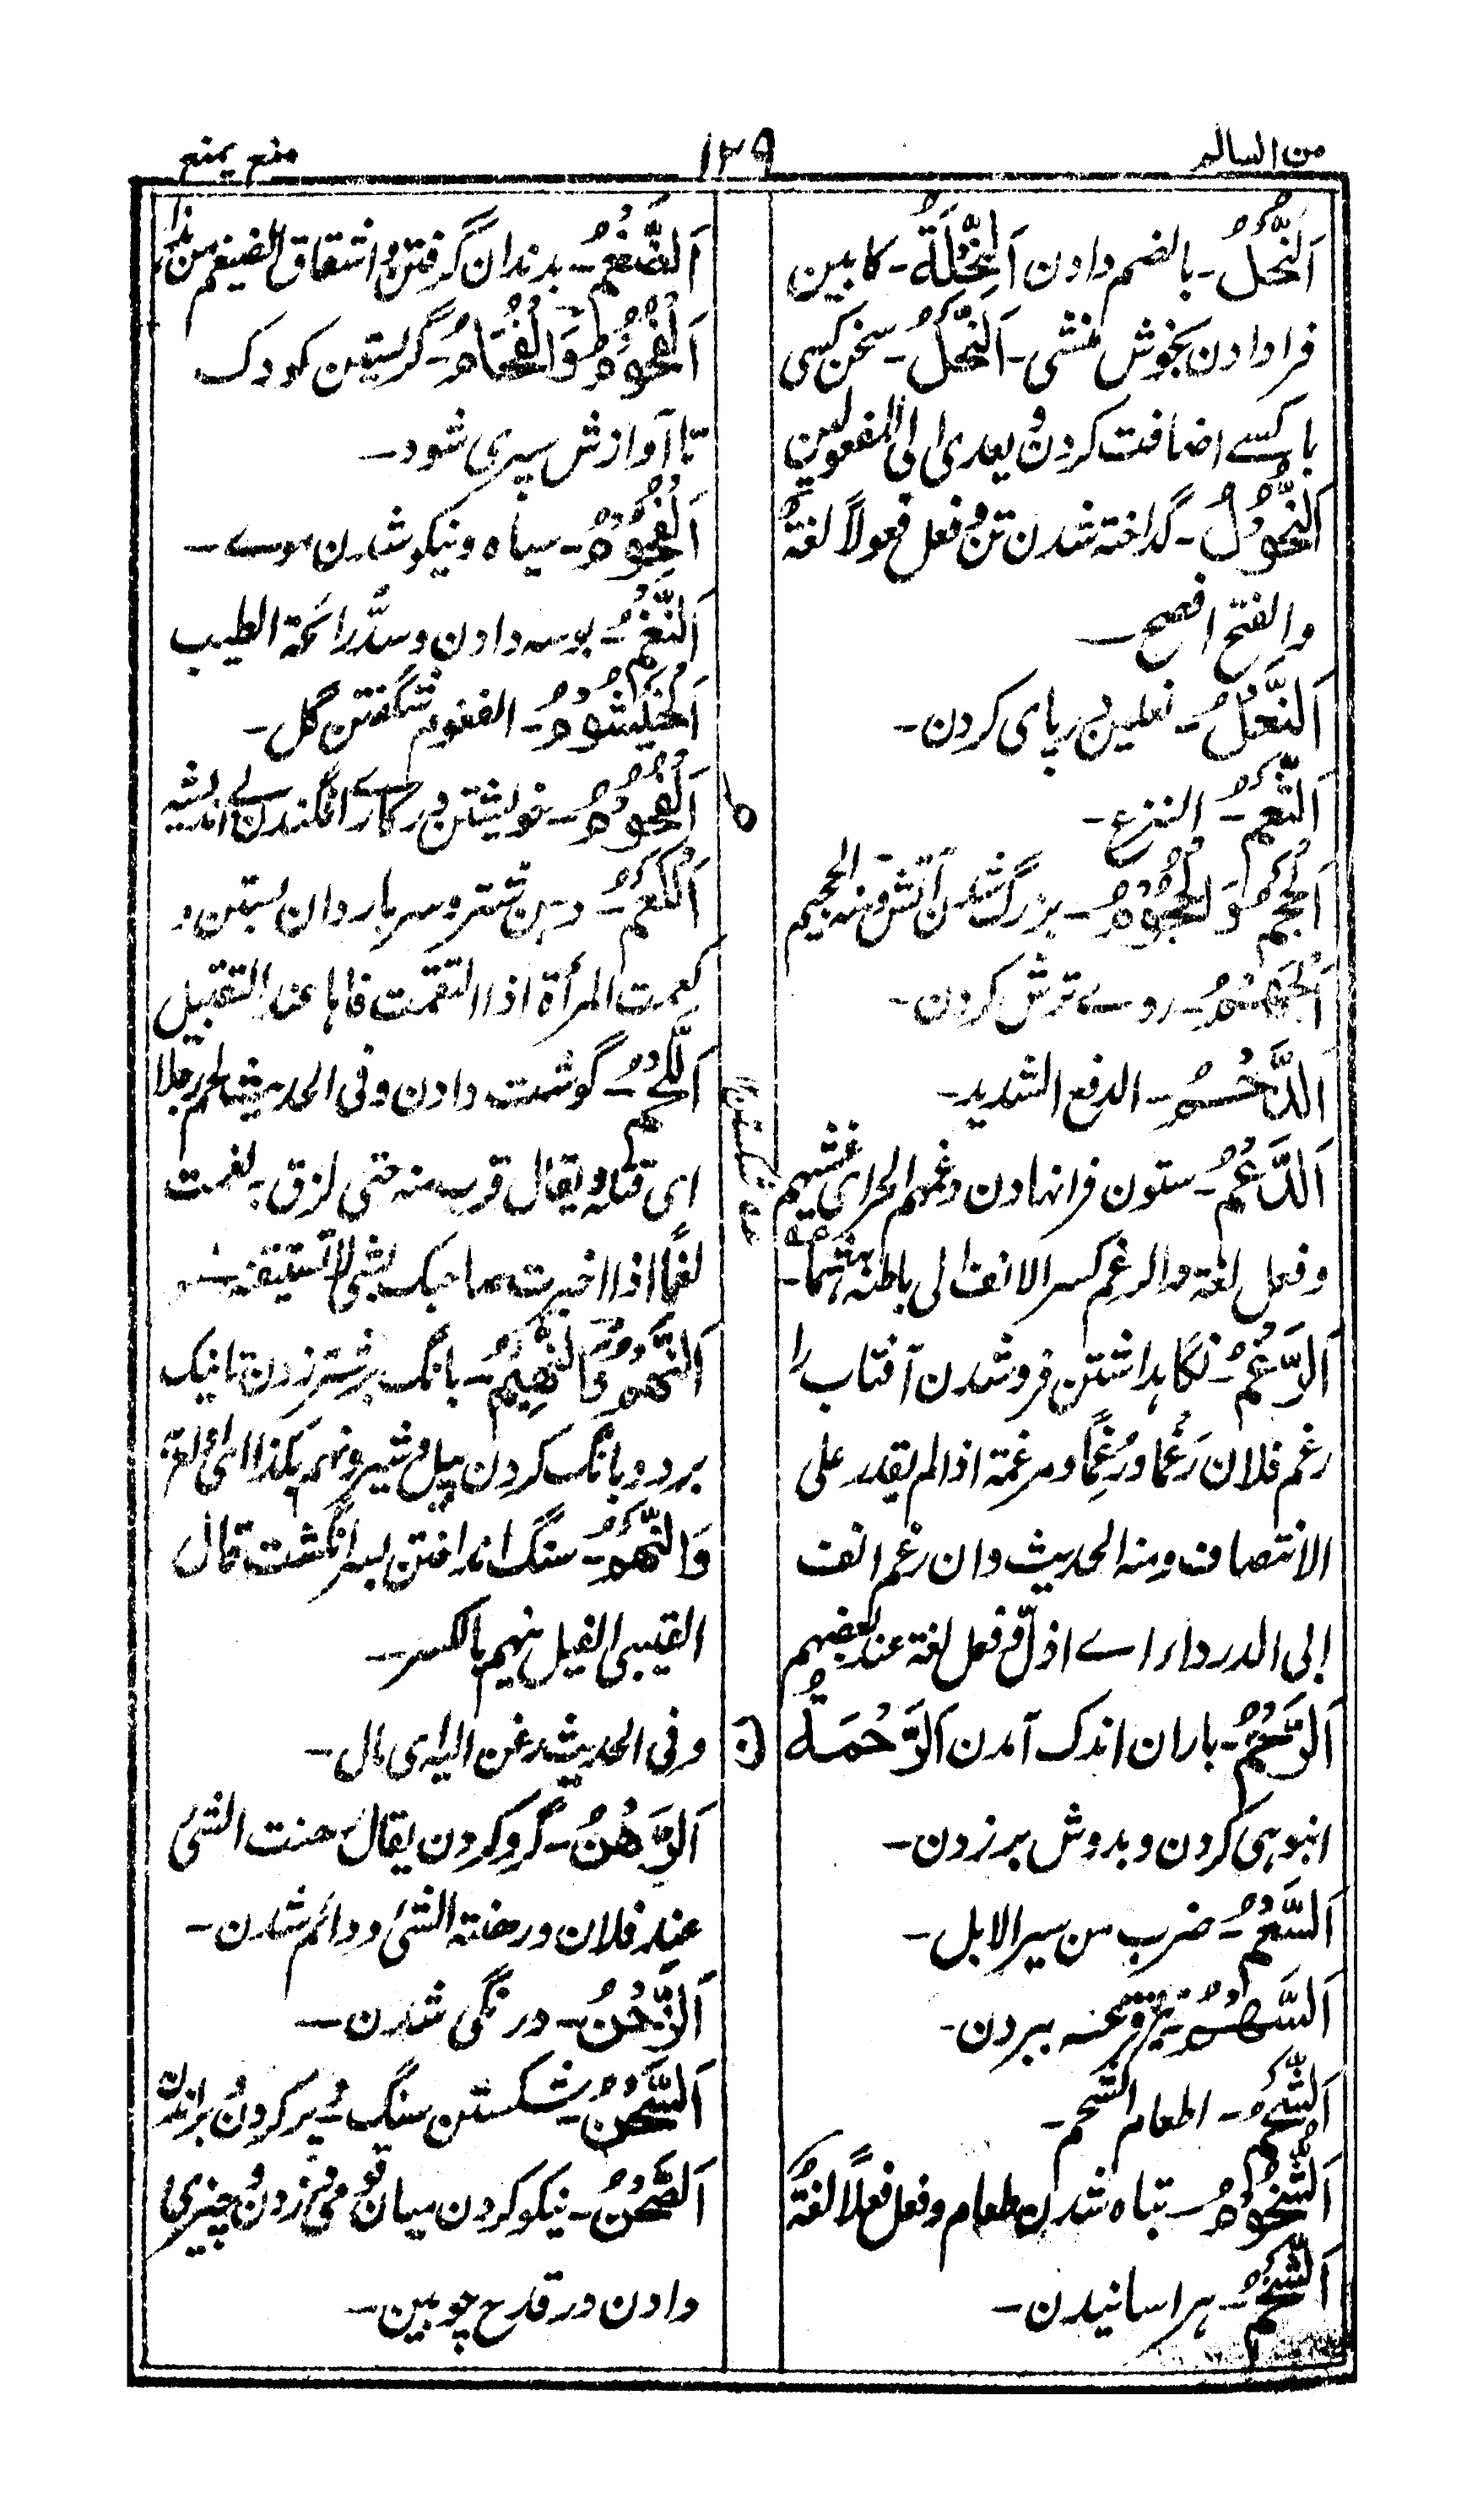 من السالم
۱۲۹
منع یمنع
اَلنُّحْلُ ـ بالضم دادن اَلنِّحْلَةُ ـ کابین
فرا دادن بخوش منشی ـ اَلنَّحْلُ ـ سخن کسی
با کسے اضافت کردن و یعدی الی المفعولین
اَلنُّحُوْلُ ـ گداخته شدن تن و فعل فعولاً لغةٌ
والفتح افصح ـ
اَلنَّعْلُ ـ نعلین در پای کردن ـ
النزع ـ
اَلْجَحْمُ وَالْجُحُوْمُ ـ بزرگ شدن آتش و منه الجحیم
اَلْجَهْمُ ـ روے ترش کردن ـ
اَلدَّحْمُ ـ الدفع الشدید ـ
اَلدَّعْمُ ـ ستون فرا نهادن ودغمهم الحر ای غشیهم
وفعل لغة والدغم کسر الانف الی باطنه هشما ـ
اَلرَّغْمُ ـ نگاہداشتن فروشدن آفتاب را
رغم فلان رَغْمًا ورُغْمًا ومرغمة اذا لم یقدر علی
الانتصاف ومنه الحدیث وان رغم انف
ابی الدرداء اے اذلّ وفعل لغة عند بعضهم
اَلرَّهْمُ ـ باران اندک آمدن اَلزَّحْمَةُ
انبوہی کردن و بدوش بر زدن ـ
اَلسَّعْمُ ـ ضرب من سیر الابل ـ
اَلسَّهْمُ ـ بتیر قرعه ببردن ـ
اَلشَّحْمُ ـ اطعام الشحم ـ
اَلشُّخُوْمُ ـ تباہ شدن طعام وفعل فعلاً لغةٌ
ہراسانیدن ـ
اَلضَّغْمُ ـ بدندان گرفتن و اشتقاق الضیغم من هذا
اَلْفُحُوْمُ وَالْفُحَامُ ـ گریستن کودک
تا آوازش سپری شود ـ
اَلْفُحُوْمُ ـ سیاہ ونیکو شدن موے ـ
بوسه دادن وسدّ رائحة الطیب
الخیشوم ـ الفغوم شگفتن گل ـ
اَلْقُحُوْمُ ـ خویشتن در کارے افگندن بے اندیشه
م
اَلْكَعْمُ ـ دہن شتر و سر بار دان بستن و
کعمت المرأة اذا التقمت فاها عند التقبیل
اَللَّحْمُ ـ گوشت دادن وفی الحدیث لحم رجلا
ای قتله ویقال قرب منه حتی لزق به لغمت
لغمًا اذا اخبرت صاحبک بشئ لا تستیقنه ـ
اَلنَّهْمُ وَالنَّهِیْمُ ـ بانگ بر شتر زدن تا نیک
برود و بانگ کردن پیل و شیر و نهم ینهم کذا لغة
وَالنَّهْمُ ـ سنگ انداختن بسر انگشت قال
القیبی الفیل ینهم بالکسر ـ
ن
وفی الحدیث رغن الیه ای مال ـ
اَلرَّهْنُ ـ گرو کردن یقال رهنت الشئ
عند فلان ورهنته الشئ و دائم شدن ـ
اَلزَّحْنُ ـ درنگی شدن ـ
اَلشَّحْنُ ـ شکستن سنگ و پر کردن و براندن
اَلصَّحْنُ ـ نیکو کردن میان قومی و زدن و چیزی
دادن در قدح چوبین ـ